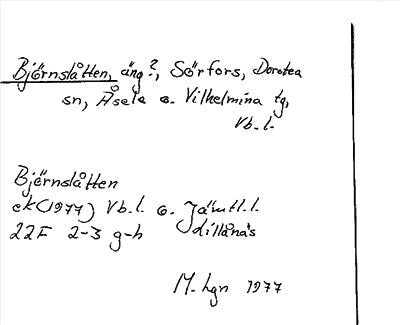 Björnslåtten, äng?, Sörfors, Dorotea
sn, Åsele o. Vilhelmina tg,
Vb.l.
Björnslåtten
ek (1977) Vb.l. o. Jämtl.l.
22F 2-3 g-h Lillånäs
M. hgn 1977